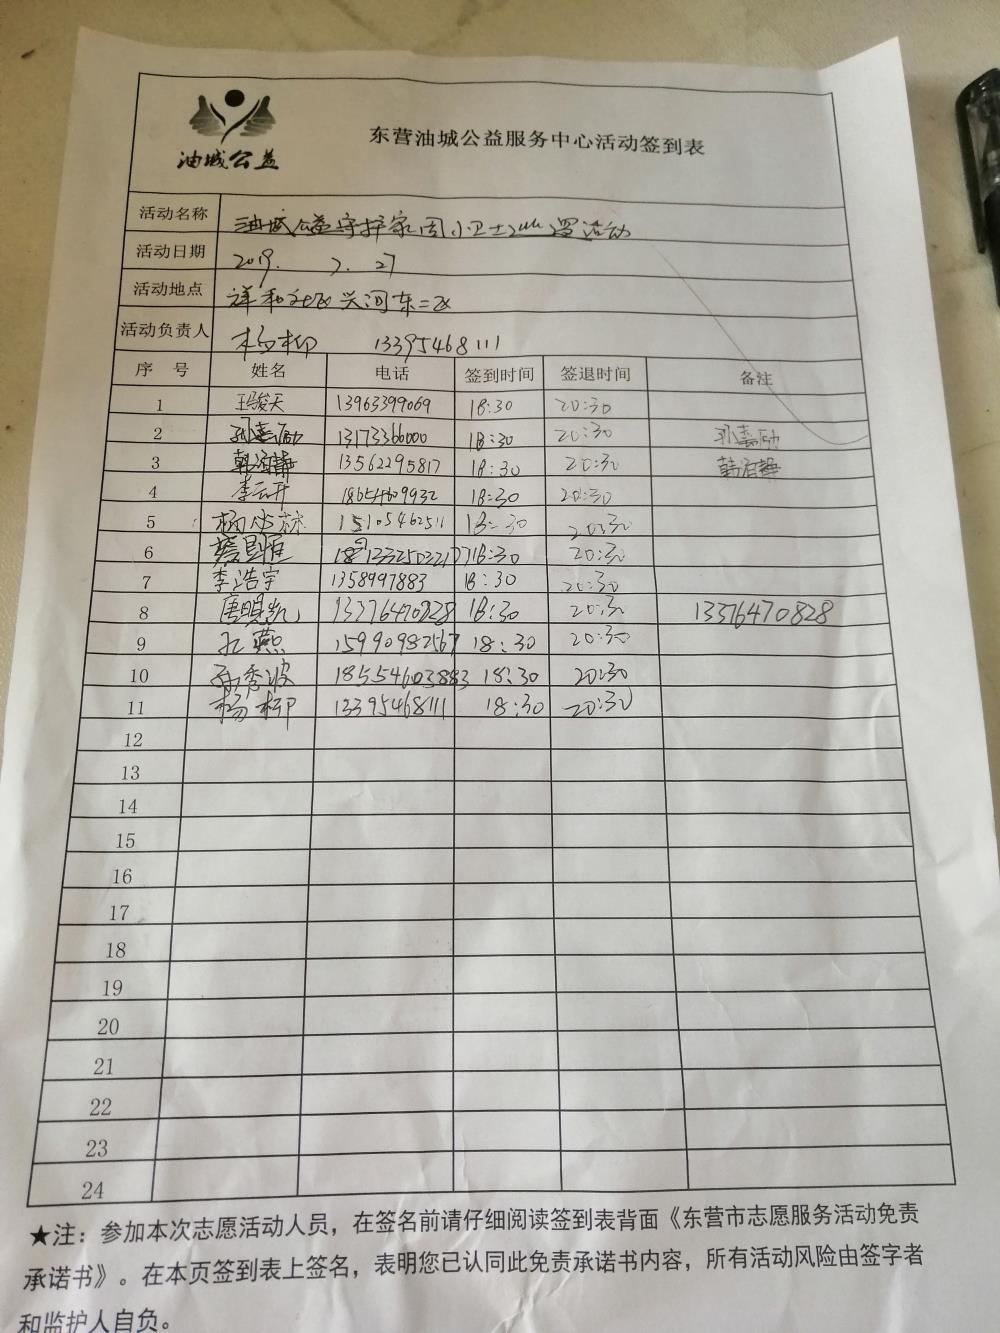 油城公益
东营油城公益服务中心活动签到表
活动名称 油城公益守护家园小卫士 活动
活动日期 2019. 7. 27
活动地点 祥和社区兴河东二区
活动负责人 杨柳 13395468111
序 号 姓名 电话 签到时间 签退时间 备注
1 王骏天 13963399069 18:30 20:30
2 孙嘉励 13173366000 18:30 20:30 孙嘉励
3 韩涵静 13562295817 18:30 20:30 韩涵静
4 李云开 18654609932 18:30 20:30
5 杨 林 15105462511 18:30 20:30
6 18:30 20:30
7 李浩宇 1358997883 18:30 20:30
8 唐明凯 13376470828 18:30 20:30 13376470828
9 燕 15990982567 18:30 20:30
10 孙秀波 18554603883 18:30 20:30
11 杨柳 13395468111 18:30 20:30
12
13
14
15
16
17
18
19
20
21
22
23
24
★注：参加本次志愿活动人员，在签名前请仔细阅读签到表背面《东营市志愿服务活动免责
承诺书》。在本页签到表上签名，表明您已认同此免责承诺书内容，所有活动风险由签字者
和监护人自负。